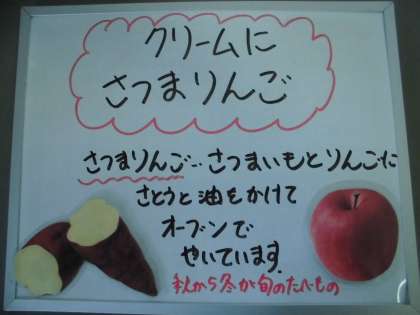 クリームに
さつまりんご
さつまりんご…さつまいもとりんごに
さとうと油をかけて
オーブンで
やいています
秋から冬が旬のたべもの